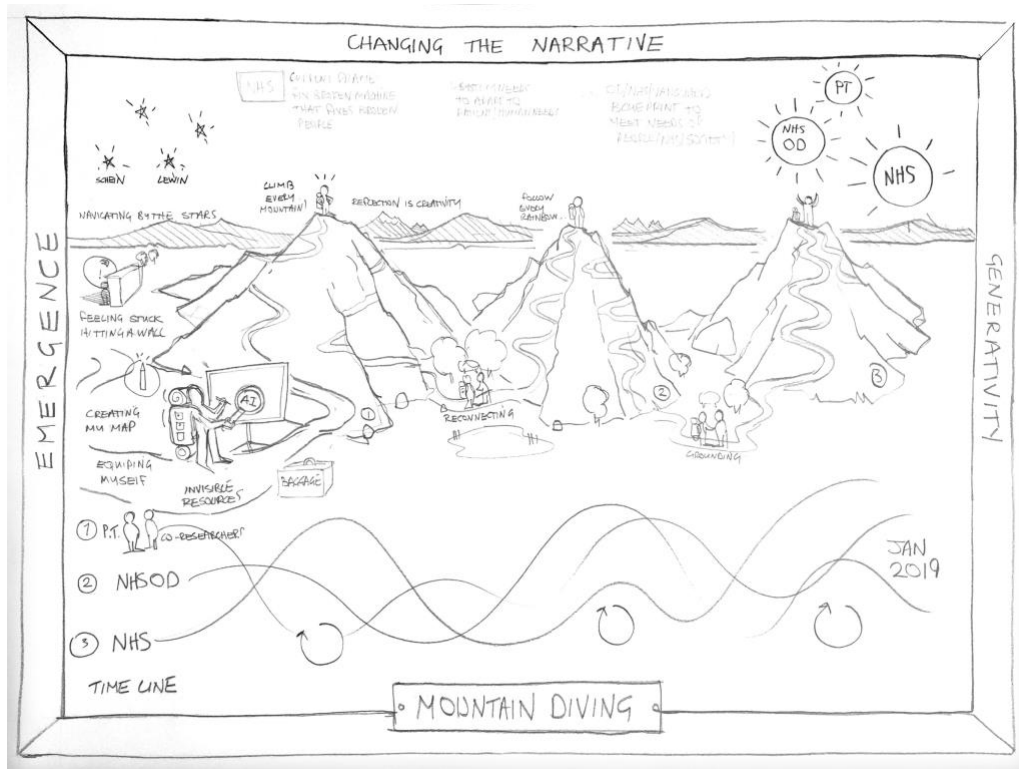 CHANGING THE NARRATIVE
NHS
CURRENT FRAME
FIX BROKEN MACHINE
THAT FIXES BROKEN
PEOPLE
TO ADAPT TO
BLUEPRINT TO
MEET NEEDS OF
PEOPLE/NHS/SOCIETY
PT
NHS
OD
NHS
SCHEIN
LEWIN
NAVIGATING BY THE STARS
CLIMB
EVERY
MOUNTAIN!
REFLECTION IS CREATIVITY
FOLLOW
EVERY
RAINBOW...
EMERGENCE
GENERATIVITY
FEELING STUCK
HITTING A WALL
CREATING
MY MAP
AI
EQUIPING
MYSELF
INVISIBLE
RESOURCES
BAGGAGE
1
RECONNECTING
2
GROUNDING
3
1 P.T.
CO-RESEARCHERS
2 NHSOD
3 NHS
JAN
2019
TIME LINE
MOUNTAIN DIVING